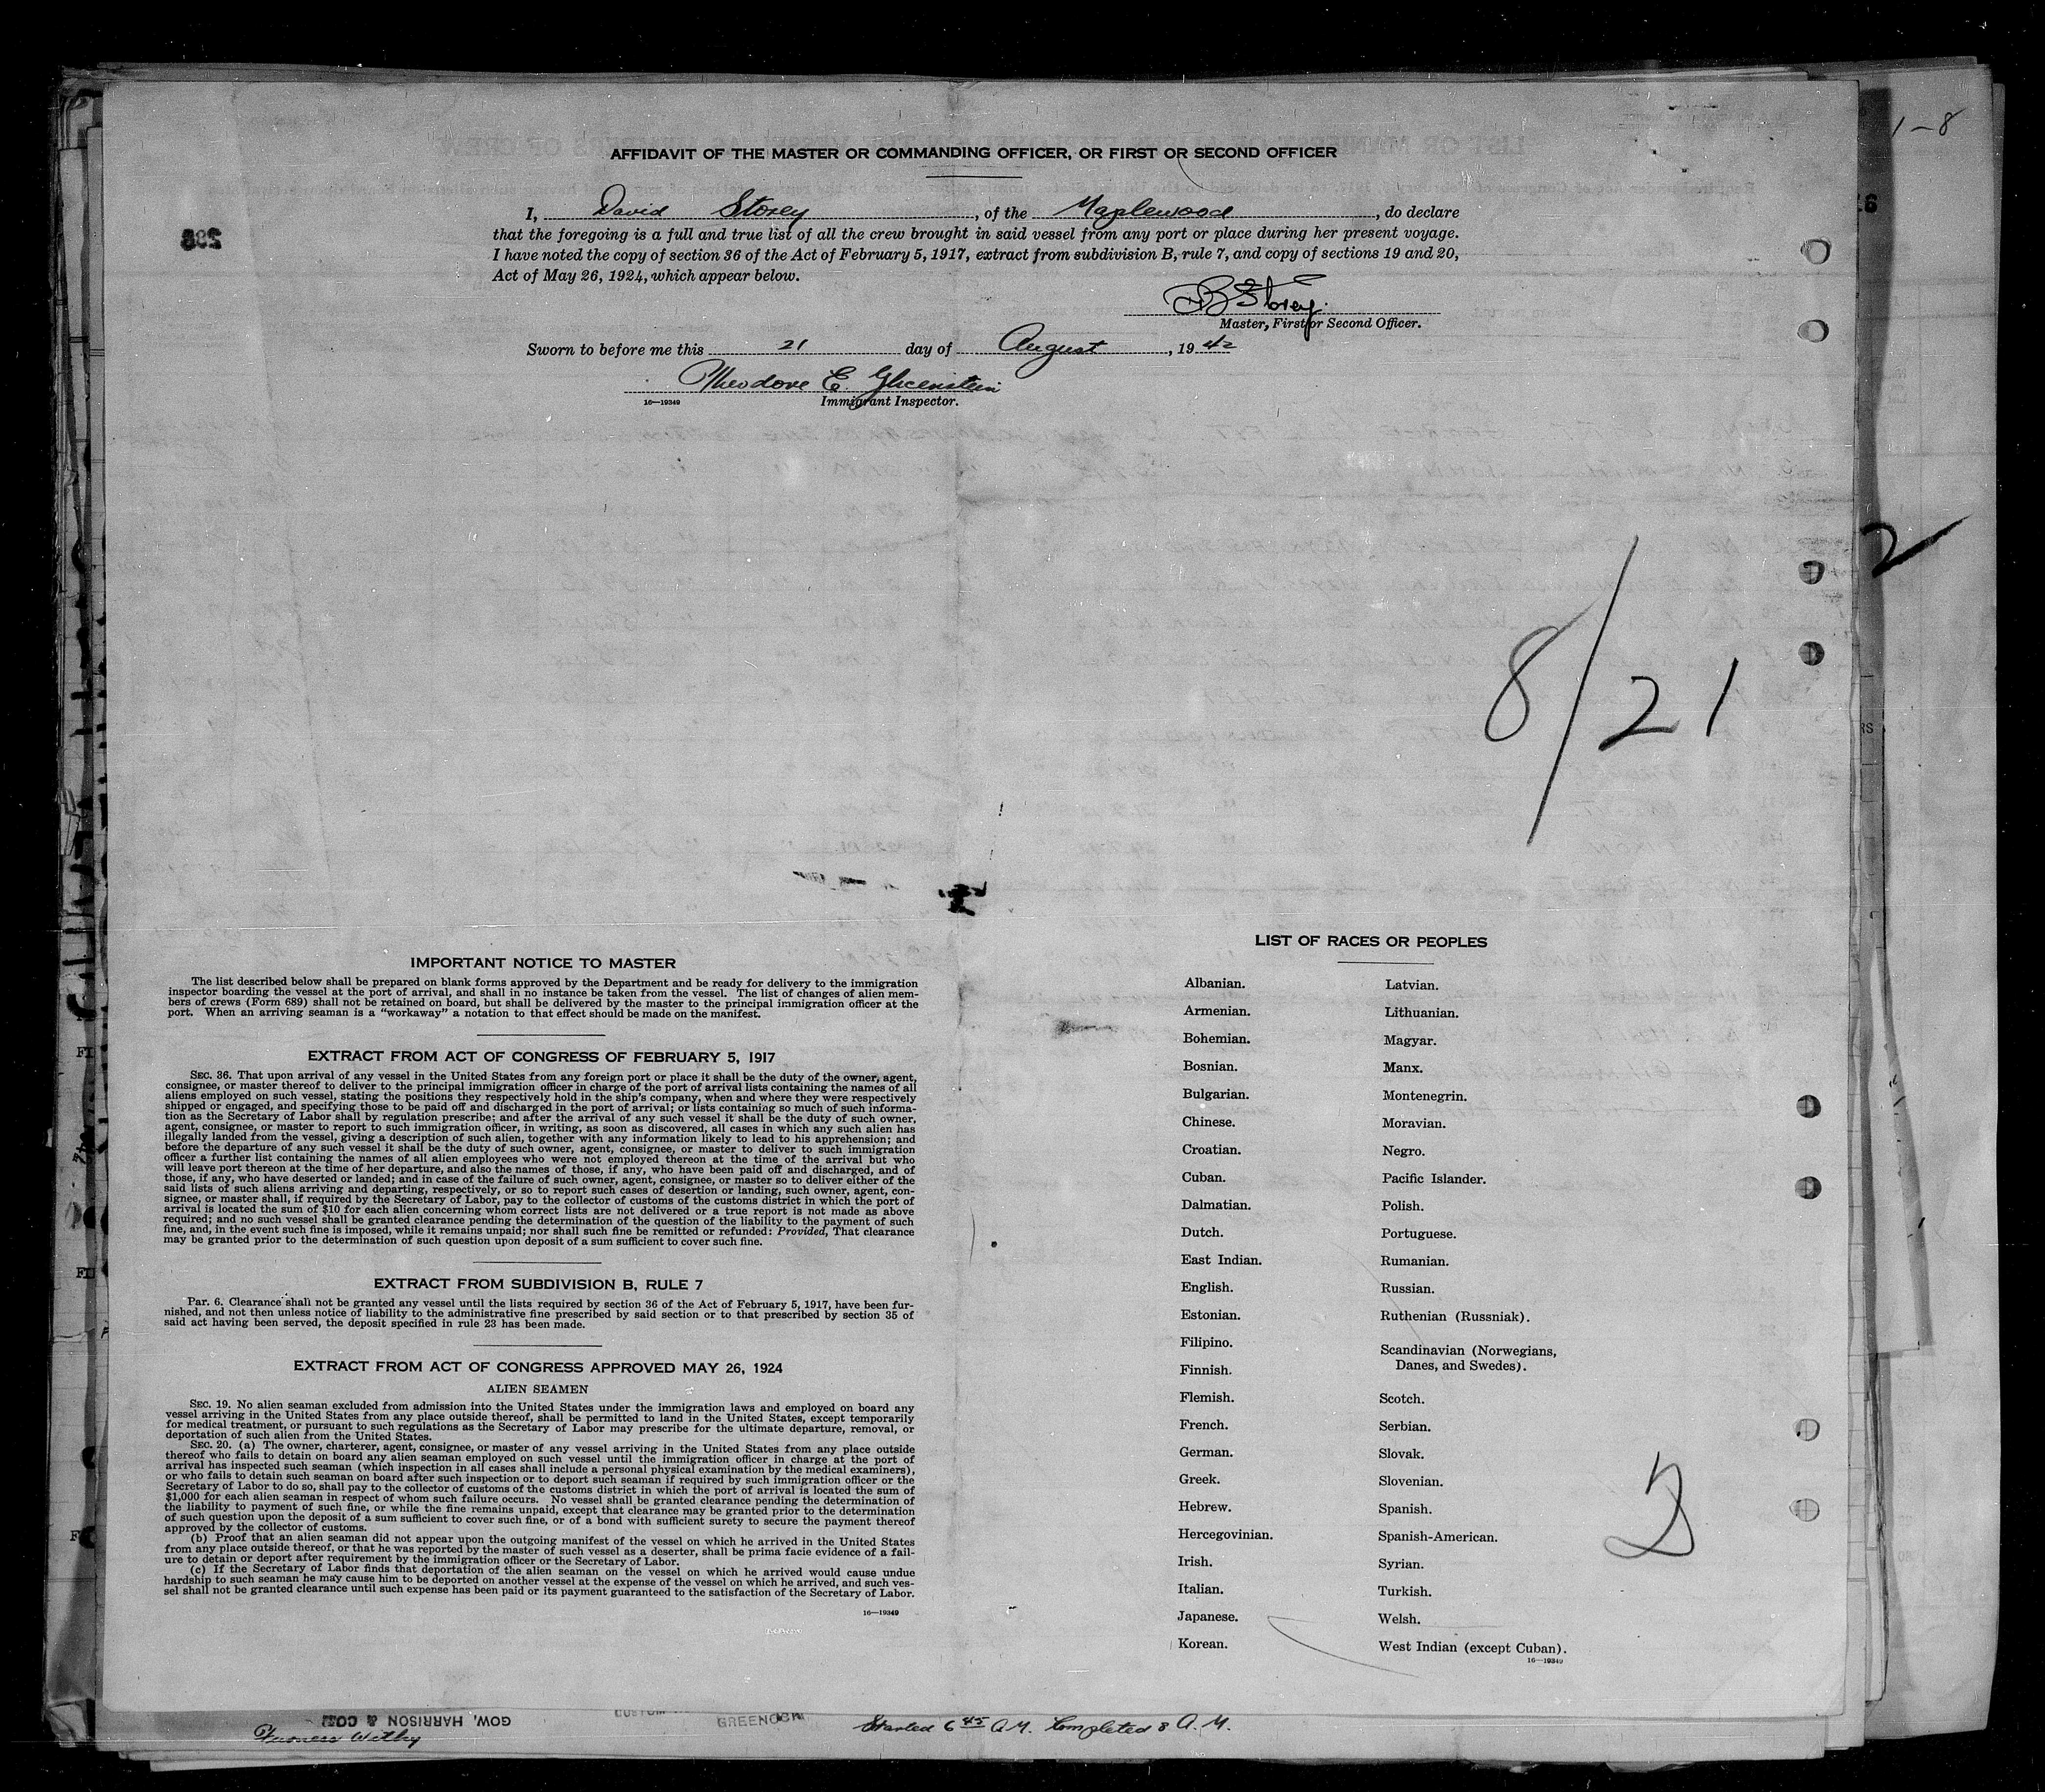 1-8
AFFIDAVIT OF THE MASTER OR COMMANDING OFFICER, OR FIRST OR SECOND OFFICER
I, David Storey, of the Maplewood, do declare
that the foregoing is a full and true list of all the crew brought in said vessel from any port or place during her present voyage.
I have noted the copy of section 36 of the Act of February 5, 1917, extract from subdivision B, rule 7, and copy of sections 19 and 20,
Act of May 26, 1924, which appear below.
D B Storey
Master, First or Second Officer.
Sworn to before me this 21 day of August, 1942
Theodore E.
16—19349 Immigrant Inspector.
2
8/21
IMPORTANT NOTICE TO MASTER
The list described below shall be prepared on blank forms approved by the Department and be ready for delivery to the immigration
inspector boarding the vessel at the port of arrival, and shall in no instance be taken from the vessel. The list of changes of alien mem-
bers of crews (Form 689) shall not be retained on board, but shall be delivered by the master to the principal immigration officer at the
port. When an arriving seaman is a "workaway" a notation to that effect should be made on the manifest.
EXTRACT FROM ACT OF CONGRESS OF FEBRUARY 5, 1917
SEC. 36. That upon arrival of any vessel in the United States from any foreign port or place it shall be the duty of the owner, agent,
consignee, or master thereof to deliver to the principal immigration officer in charge of the port of arrival lists containing the names of all
aliens employed on such vessel, stating the positions they respectively hold in the ship's company, when and where they were respectively
shipped or engaged, and specifying those to be paid off and discharged in the port of arrival; or lists containing so much of such informa-
tion as the Secretary of Labor shall by regulation prescribe; and after the arrival of any such vessel it shall be the duty of such owner,
agent, consignee, or master to report to such immigration officer, in writing, as soon as discovered, all cases in which any such alien has
illegally landed from the vessel, giving a description of such alien, together with any information likely to lead to his apprehension; and
before the departure of any such vessel it shall be the duty of such owner, agent, consignee, or master to deliver to such immigration
officer a further list containing the names of all alien employees who were not employed thereon at the time of the arrival but who
will leave port thereon at the time of her departure, and also the names of those, if any, who have been paid off and discharged, and of
those, if any, who have deserted or landed; and in case of the failure of such owner, agent, consignee, or master so to deliver either of the
said lists of such aliens arriving and departing, respectively, or so to report such cases of desertion or landing, such owner, agent, con-
signee, or master shall, if required by the Secretary of Labor, pay to the collector of customs of the customs district in which the port of
arrival is located the sum of $10 for each alien concerning whom correct lists are not delivered or a true report is not made as above
required; and no such vessel shall be granted clearance pending the determination of the question of the liability to the payment of such
fine, and, in the event such fine is imposed, while it remains unpaid; nor shall such fine be remitted or refunded: Provided, That clearance
may be granted prior to the determination of such question upon deposit of a sum sufficient to cover such fine.
EXTRACT FROM SUBDIVISION B, RULE 7
Par. 6. Clearance shall not be granted any vessel until the lists required by section 36 of the Act of February 5, 1917, have been fur-
nished, and not then unless notice of liability to the administrative fine prescribed by said section or to that prescribed by section 35 of
said act having been served, the deposit specified in rule 23 has been made.
EXTRACT FROM ACT OF CONGRESS APPROVED MAY 26, 1924
ALIEN SEAMEN
SEC. 19. No alien seaman excluded from admission into the United States under the immigration laws and employed on board any
vessel arriving in the United States from any place outside thereof, shall be permitted to land in the United States, except temporarily
for medical treatment, or pursuant to such regulations as the Secretary of Labor may prescribe for the ultimate departure, removal, or
deportation of such alien from the United States.
SEC. 20. (a) The owner, charterer, agent, consignee, or master of any vessel arriving in the United States from any place outside
thereof who fails to detain on board any alien seaman employed on such vessel until the immigration officer in charge at the port of
arrival has inspected such seaman (which inspection in all cases shall include a personal physical examination by the medical examiners),
or who fails to detain such seaman on board after such inspection or to deport such seaman if required by such immigration officer or the
Secretary of Labor to do so, shall pay to the collector of customs of the customs district in which the port of arrival is located the sum of
$1,000 for each alien seaman in respect of whom such failure occurs. No vessel shall be granted clearance pending the determination of
the liability to payment of such fine, or while the fine remains unpaid, except that clearance may be granted prior to the determination
of such question upon the deposit of a sum sufficient to cover such fine, or of a bond with sufficient surety to secure the payment thereof
approved by the collector of customs.
(b) Proof that an alien seaman did not appear upon the outgoing manifest of the vessel on which he arrived in the United States
from any place outside thereof, or that he was reported by the master of such vessel as a deserter, shall be prima facie evidence of a fail-
ure to detain or deport after requirement by the immigration officer or the Secretary of Labor.
(c) If the Secretary of Labor finds that deportation of the alien seaman on the vessel on which he arrived would cause undue
hardship to such seaman he may cause him to be deported on another vessel at the expense of the vessel on which he arrived, and such ves-
sel shall not be granted clearance until such expense has been paid or its payment guaranteed to the satisfaction of the Secretary of Labor.
16—19349
LIST OF RACES OR PEOPLES
Albanian.
Armenian.
Bohemian.
Bosnian.
Bulgarian.
Chinese.
Croatian.
Cuban.
Dalmatian.
Dutch.
East Indian.
English.
Estonian.
Filipino.
Finnish.
Flemish.
French.
German.
Greek.
Hebrew.
Hercegovinian.
Irish.
Italian.
Japanese.
Korean.
Latvian.
Lithuanian.
Magyar.
Manx.
Montenegrin.
Moravian.
Negro.
Pacific Islander.
Polish.
Portuguese.
Rumanian.
Russian.
Ruthenian (Russniak).
Scandinavian (Norwegians,
Danes, and Swedes).
Scotch.
Serbian.
Slovak.
Slovenian.
Spanish.
Spanish-American.
Syrian.
Turkish.
Welsh.
West Indian (except Cuban).
16—19349
GOW, HARRISON & CO.
GREENOCK
Furness Withy
Started 6 45 A.M. Completed 8 A.M.